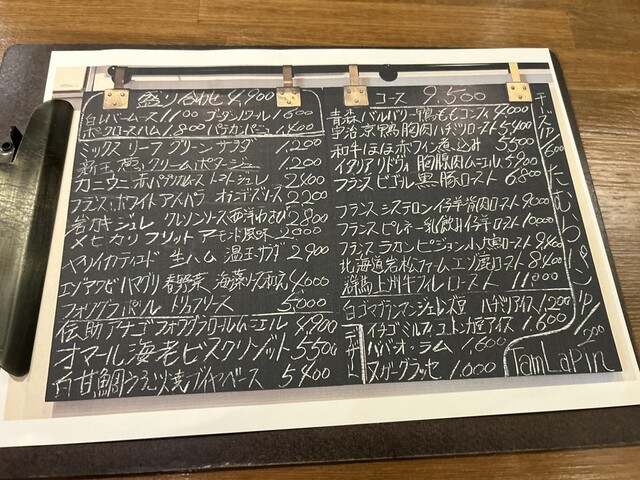 盛り合わせ 4,900
白レバームース 1100 ゴルゴンゾーラ 1600
ポークロースハム 1,800 パテカンパーニュ 1,400
ミックスリーフグリーンサラダ 1,200
クリームポタージュ 1,200
カニ ウニ 赤パプリカムース トマトジュレ 2400
フランス ホワイトアスパラ オランデーズソース 2200
岩カキ ジュレ クレソンソース 西洋わさび 2,800
メヒカリ フリット アーモンド風味 2000
ヤリイカ 生ハム 温玉サラダ 2,900
ハマグリ 春野菜 海藻リゾット 4,600
フォアグラポワレ トリュフソース 5,000
フォアグラ ロール ムニエル 4,900
オマール海老 ビスク リゾット 5,500
白甘鯛うろこ焼 ブイヤベース 5,400
コース 9,500
青森 バルバリー鴨ももコンフィ 4,000
宇治京鴨胸肉ハチミツロースト 5,400
和牛ほほ赤ワイン煮込み 5500
イタリア リドヴォー 胸腺肉ムニエル 5,900
フランス ビゴール 黒豚ロースト 6,800
フランス システロン 仔羊背肉ロースト 9000
フランス ピレネー 乳飲み仔羊ロースト 10000
フランス ラカン ピジョン 小鳩ロースト
北海道 ファーム エゾ鹿ロースト
群馬上州牛フィレロースト 11,000
白ゴマブランマンジェ ハチミツアイス 1,200
イチゴミルフィーユ アイス 1,600
ババ オ・ラム 1,600
ヌガーグラッセ 1,000
TamLaPin